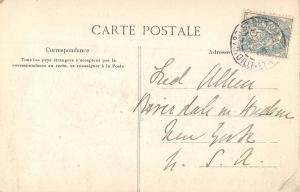 CARTE POSTALE
Correspondance
Tous les pays étrangers n'acceptent pas la
correspondance au recto, se renseigner à la Poste
Adresse
Fred Allen
Riverdale on Hudson
New York
U. S. A.